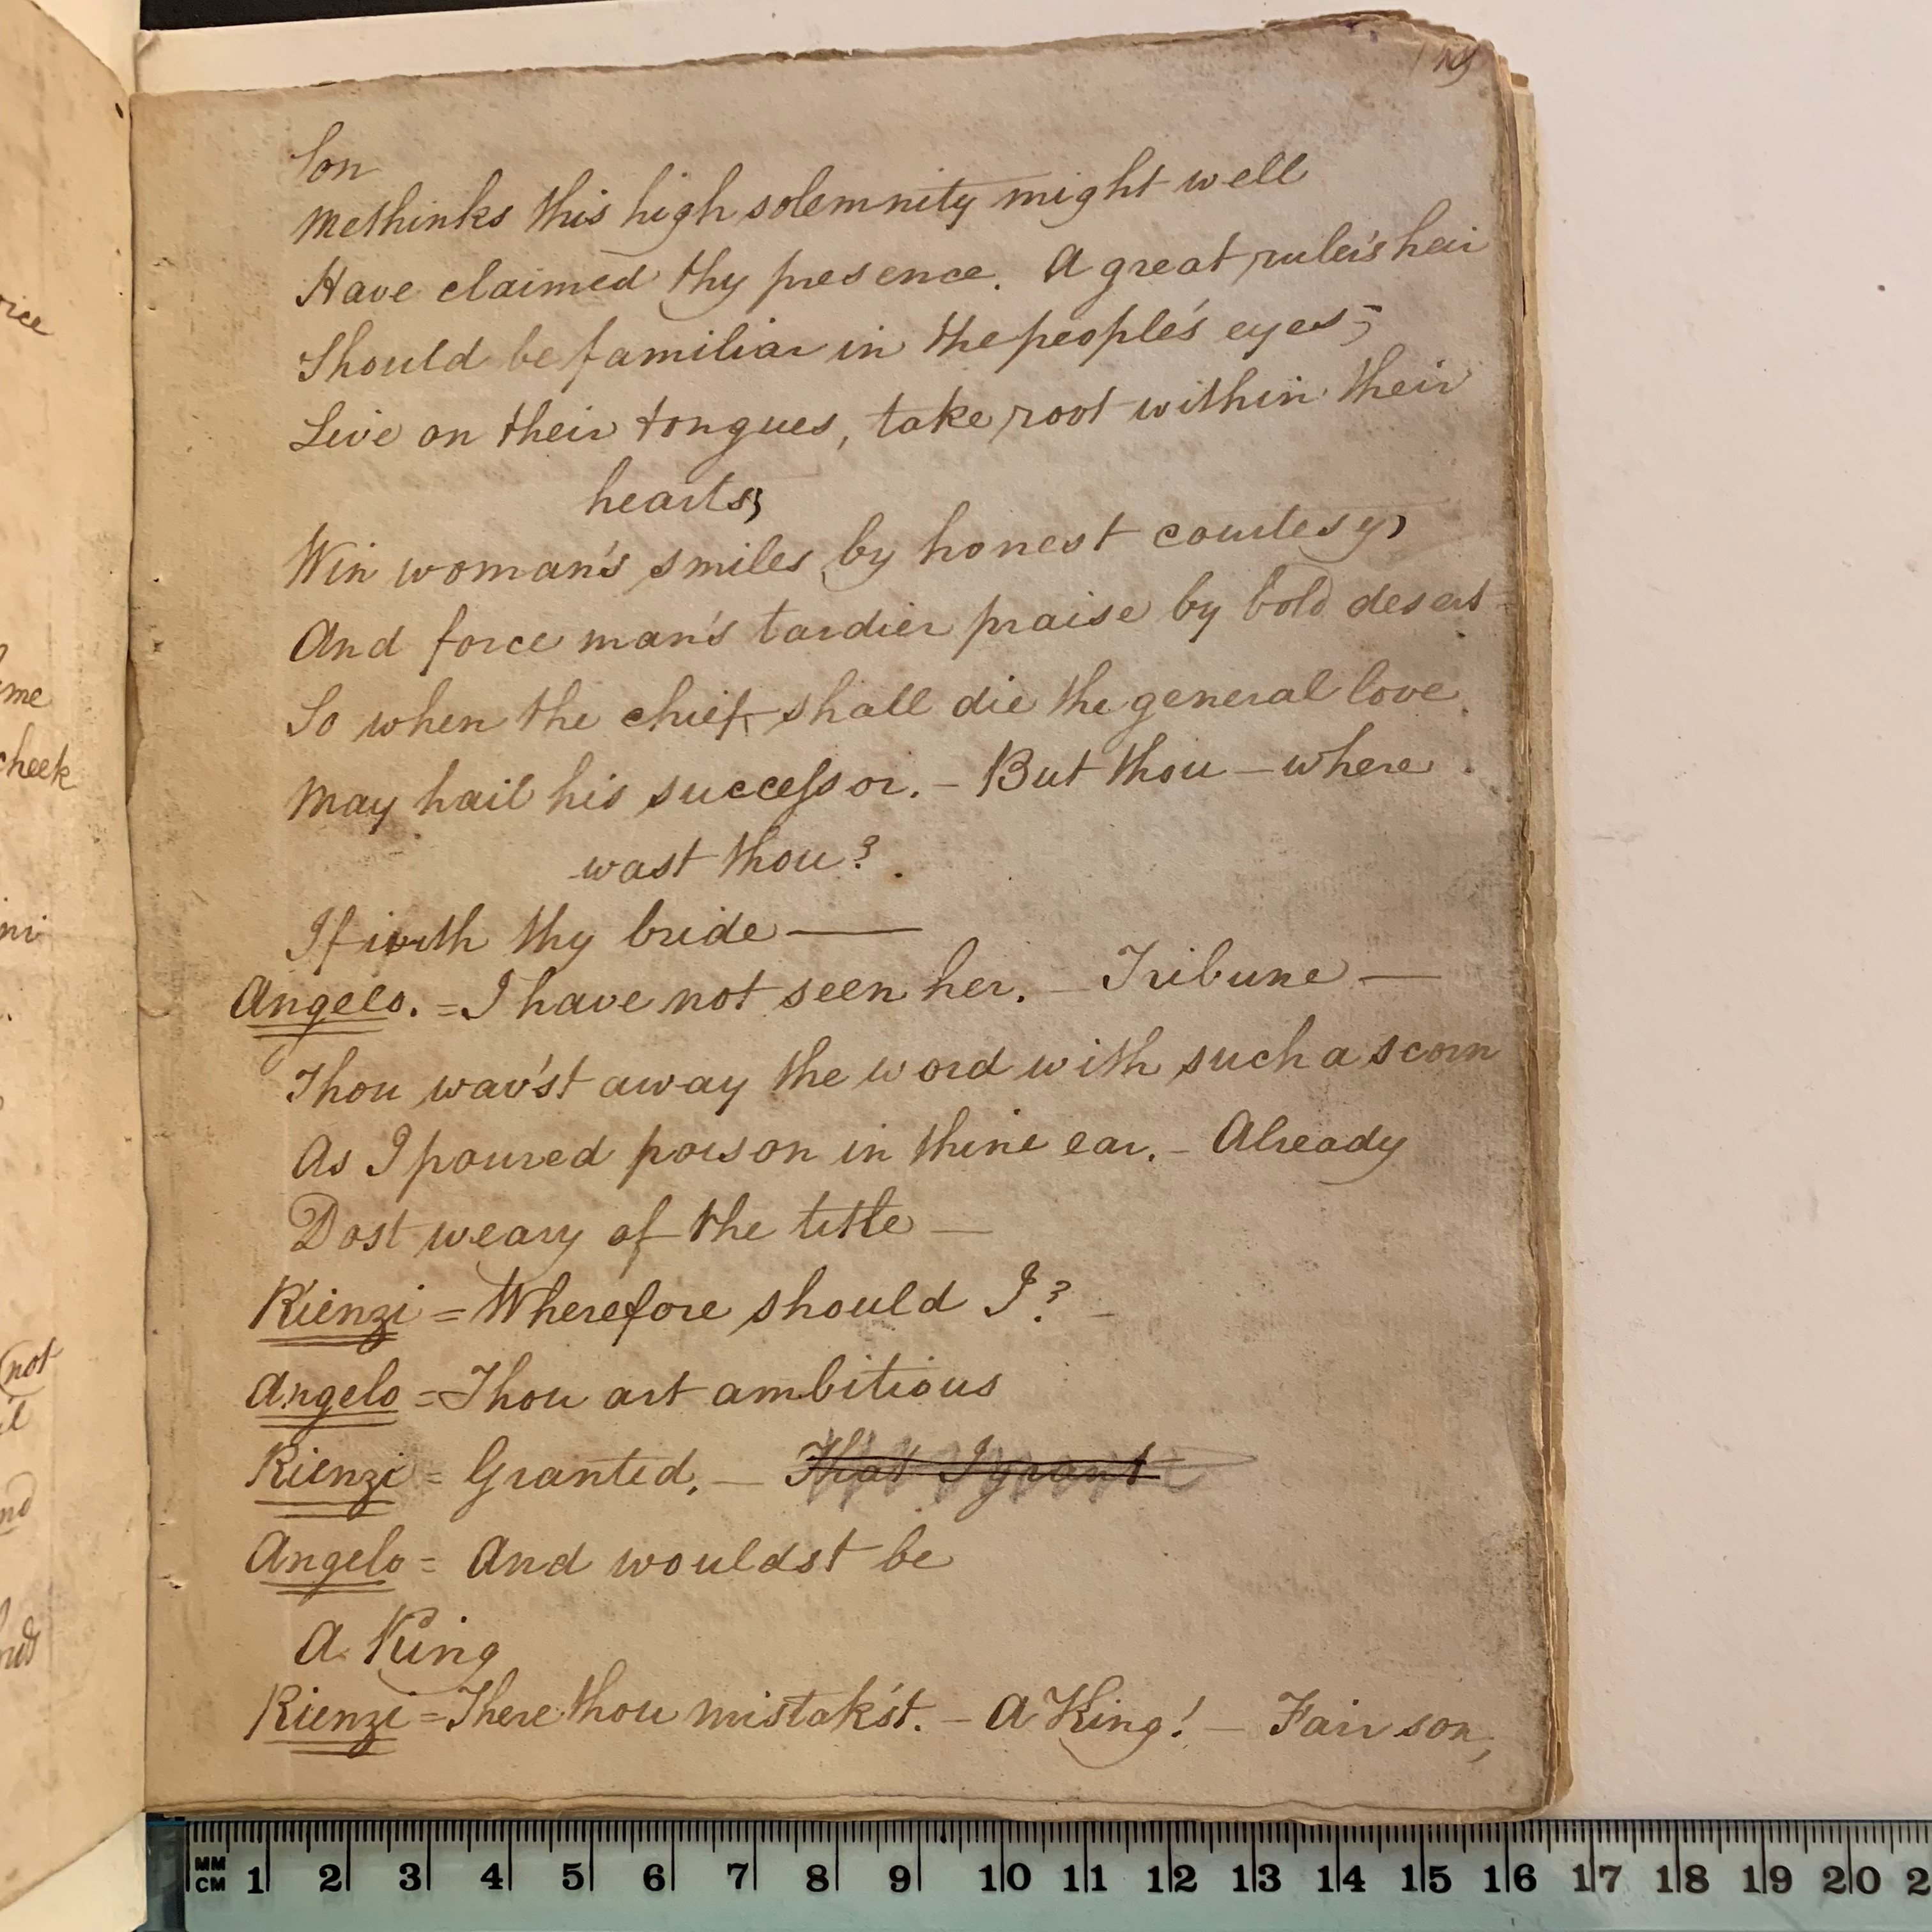 Son
Methinks this high solemnity might well
Have claimed thy presence. A great ruler's heir
Should be familiar in the people's eyes;
Live on their tongues, take root within their
hearts;
Win woman's smiles by honest courtesy,
And force man's tardier praise by bold desert
So when the chief shall die the general love
May hail his successor. – But thou – where
wast thou?
If with thy bride —
Angelo. = I have not seen her. – Tribune —
Thou wav'st away the word with such a scorn
As I poured poison in thine ear. – Already
Dost weary of the title —
Rienzi = Wherefore should I? –
Angelo = Thou art ambitious
Rienzi = Granted. — That I grant
Angelo = And wouldst be
A King
Rienzi = There thou mistak'st. – A King! – Fair son,
cheek
not
MM
CM 1 2 3 4 5 6 7 8 9 10 11 12 13 14 15 16 17 18 19 20 2